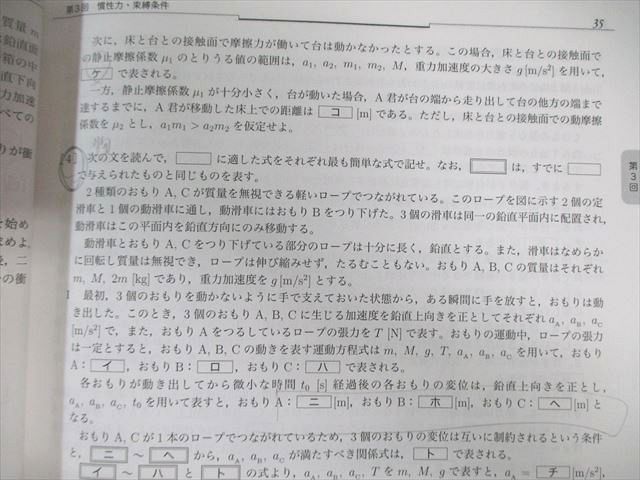 第3回 慣性力・束縛条件
35
次に，床と台との接触面で摩擦力が働いて台は動かなかったとする。この場合，床と台との接触面で
の静止摩擦係数 μ₁ のとりうる値の範囲は，a₁，a₂，m₁，m₂，M，重力加速度の大きさ g[m/s²] を用いて，
ケ で表される。
一方，静止摩擦係数 μ₁ が十分小さく，台が動いた場合，A君が台の端から走り出して台の他方の端まで
達するまでに，A君が移動した床上での距離は コ [m] である。ただし，床と台との接触面での動摩擦
係数を μ₂ とし，a₁m₁＞a₂m₂ を仮定せよ。
4 次の文を読んで， に適した式をそれぞれ最も簡単な式で記せ。なお， は，すでに
で与えられたものと同じものを表す。
2種類のおもり A, C が質量を無視できる軽いロープでつながれている。このロープを図に示す2個の定
滑車と1個の動滑車に通し，動滑車にはおもり B をつり下げた。3個の滑車は同一の鉛直平面内に配置され，
動滑車はこの平面内を鉛直方向にのみ移動する。
動滑車とおもり A, C をつり下げている部分のロープは十分に長く，鉛直とする。また，滑車はなめらか
に回転し質量は無視でき，ロープは伸び縮みせず，たるむこともない。おもり A, B, C の質量はそれぞれ
m, M, 2m [kg] であり，重力加速度を g[m/s²] とする。
I 最初，3個のおもりを動かないように手で支えておいた状態から，ある瞬間に手を放すと，おもりは動
き出した。このとき，3個のおもり A, B, C に生じる加速度を鉛直上向きを正としてそれぞれ a_A, a_B, a_C
[m/s²] で，また，おもり A をつるしているロープの張力を T [N] で表す。おもりの運動中，ロープの張力
は一定とすると，おもり A, B, C の動きを表す運動方程式は m, M, g, T, a_A, a_B, a_C を用いて，おもり
A： イ ，おもり B： ロ ，おもり C： ハ で表される。
各おもりが動き出してから微小な時間 t₀ [s] 経過後の各おもりの変位は，鉛直上向きを正とし，
a_A, a_B, a_C, t₀ を用いて表すと，おもり A： ニ [m]，おもり B： ホ [m]，おもり C： ヘ [m] と
なる。
おもり A, C が1本のロープでつながれているため，3個のおもりの変位は互いに制約されるという条件
と， ニ ～ ヘ から，a_A, a_B, a_C が満たすべき関係式は， ト で表される。
イ ～ ハ と ト の式より，a_A, a_B, a_C, T を m, M, g で表すと，a_A＝ チ [m/s²],
第3回
質量 m
は鉛直
箱の中
直下向
力加速
べての
りが衝
を始め
まめよ。
後，二
の衝